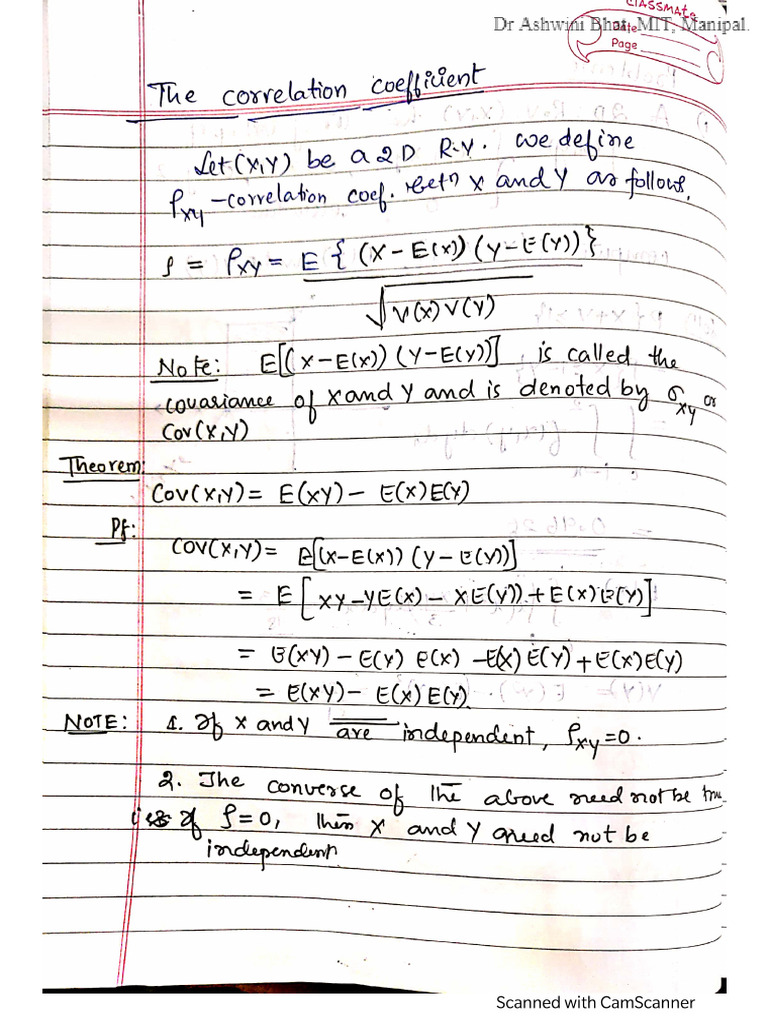 CLASSMATE
Dr Ashwini Bhat, MIT, Manipal.
Date
Page
The correlation coefficient
Let (X,Y) be a 2D R.V. we define
ρxy - correlation coef. betn X and Y as follows.
ρ = ρxy = E { (X - E(x)) (Y - E(Y)) }
√V(x) V(Y)
Note: E[(X - E(x)) (Y - E(Y))] is called the
covariance of X and Y and is denoted by σxy or
Cov(X,Y)
Theorem:
COV(X,Y) = E(XY) - E(X)E(Y)
Pf:
COV(X,Y) = E[(X-E(X)) (Y-E(Y))]
= E[XY - YE(X) - XE(Y)) + E(X)E(Y)]
= E(XY) - E(Y) E(X) - E(X) E(Y) + E(X)E(Y)
= E(XY) - E(X) E(Y).
NOTE: 1. If X and Y are independent, ρxy = 0.
2. The converse of the above need not be true
If ρ = 0, then X and Y need not be
independent.
Scanned with CamScanner